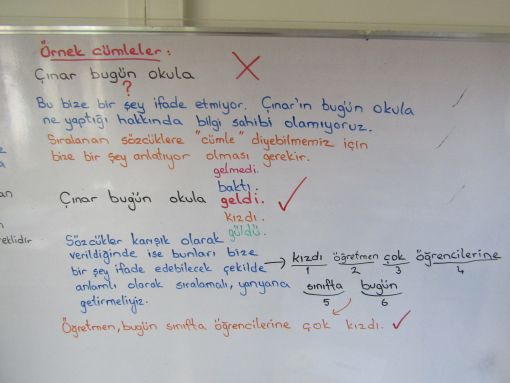 Örnek cümleler:
Çınar bugün okula
?
Bu bize bir şey ifade etmiyor. Çınar'ın bugün okula
ne yaptığı hakkında bilgi sahibi olamıyoruz.
Sıralanan sözcüklere "cümle" diyebilmemiz için
bize bir şey anlatıyor olması gerekir.
gelmedi.
baktı.
Çınar bugün okula geldi.
kızdı.
güldü.
Sözcükler karışık olarak
verildiğinde ise bunları bize
bir şey ifade edebilecek çekilde
anlamlı olarak sıralamalı, yanyana
getirmeliyiz.
kızdı öğretmen çok öğrencilerine
1 2 3 4
sınıfta bugün
5 6
Öğretmen, bugün sınıfta öğrencilerine çok kızdı.